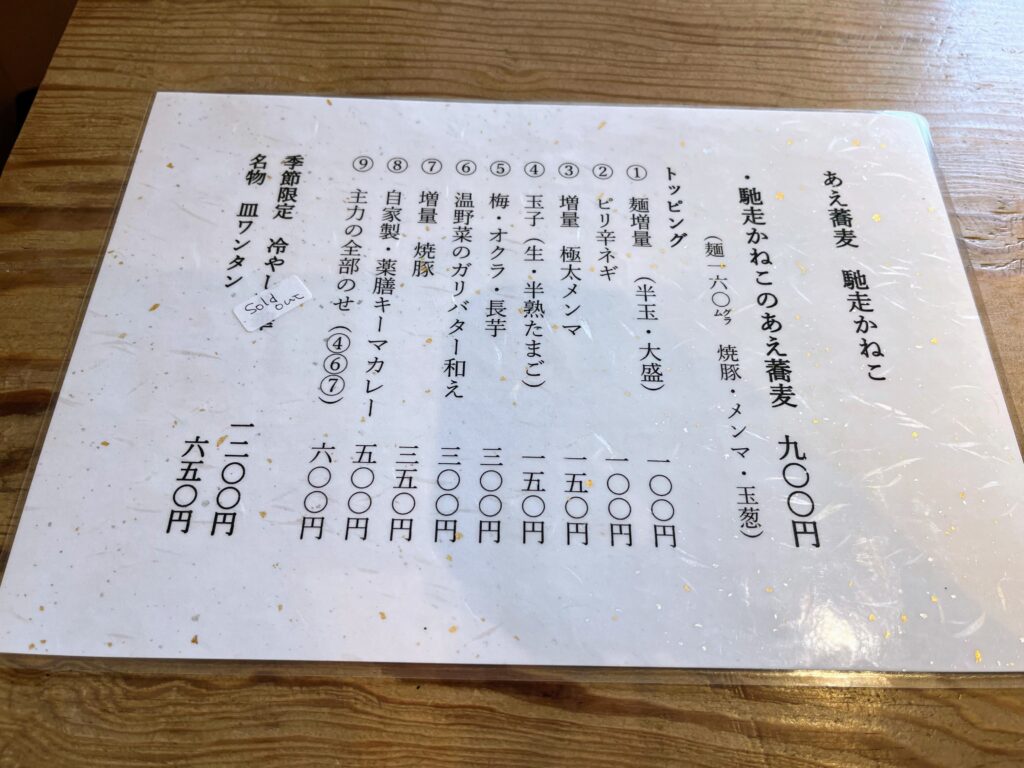 あえ蕎麦 馳走かねこ
・馳走かねこのあえ蕎麦 九〇〇円
(麺一六〇グラム 焼豚・メンマ・玉葱)
トッピング
① 麺増量 (半玉・大盛) 一〇〇円
② ピリ辛ネギ 一〇〇円
③ 増量 極太メンマ 一五〇円
④ 玉子(生・半熟たまご) 一五〇円
⑤ 梅・オクラ・長芋 三〇〇円
⑥ 温野菜のガリバター和え 三〇〇円
⑦ 増量 焼豚 三五〇円
⑧ 自家製・薬膳キーマカレー 五〇〇円
⑨ 主力の全部のせ (④⑥⑦) 六〇〇円
季節限定 冷やし 一二〇〇円
Sold out
名物 皿ワンタン 六五〇円